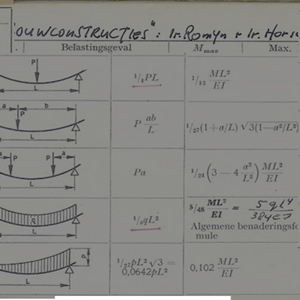 OUWCONSTRUCTIES": Ir. Romijn + Ir. Hors
Belastingsgeval M_max Max.
P L 1/4 PL 1/12 ML²/EI
a b P L P ab/L 1/27(1+a/L) √3(1−a²/L²)
P a a P L Pa 1/24 (3 − 4 a²/L²) ML²/EI
q L 1/8 qL² 5/48 ML²/EI = 5qL⁴/384EI
Algemene benaderingsfo
mule
p L 1/27 pL² √3 = 0,102 ML²/EI
0,0642pL²